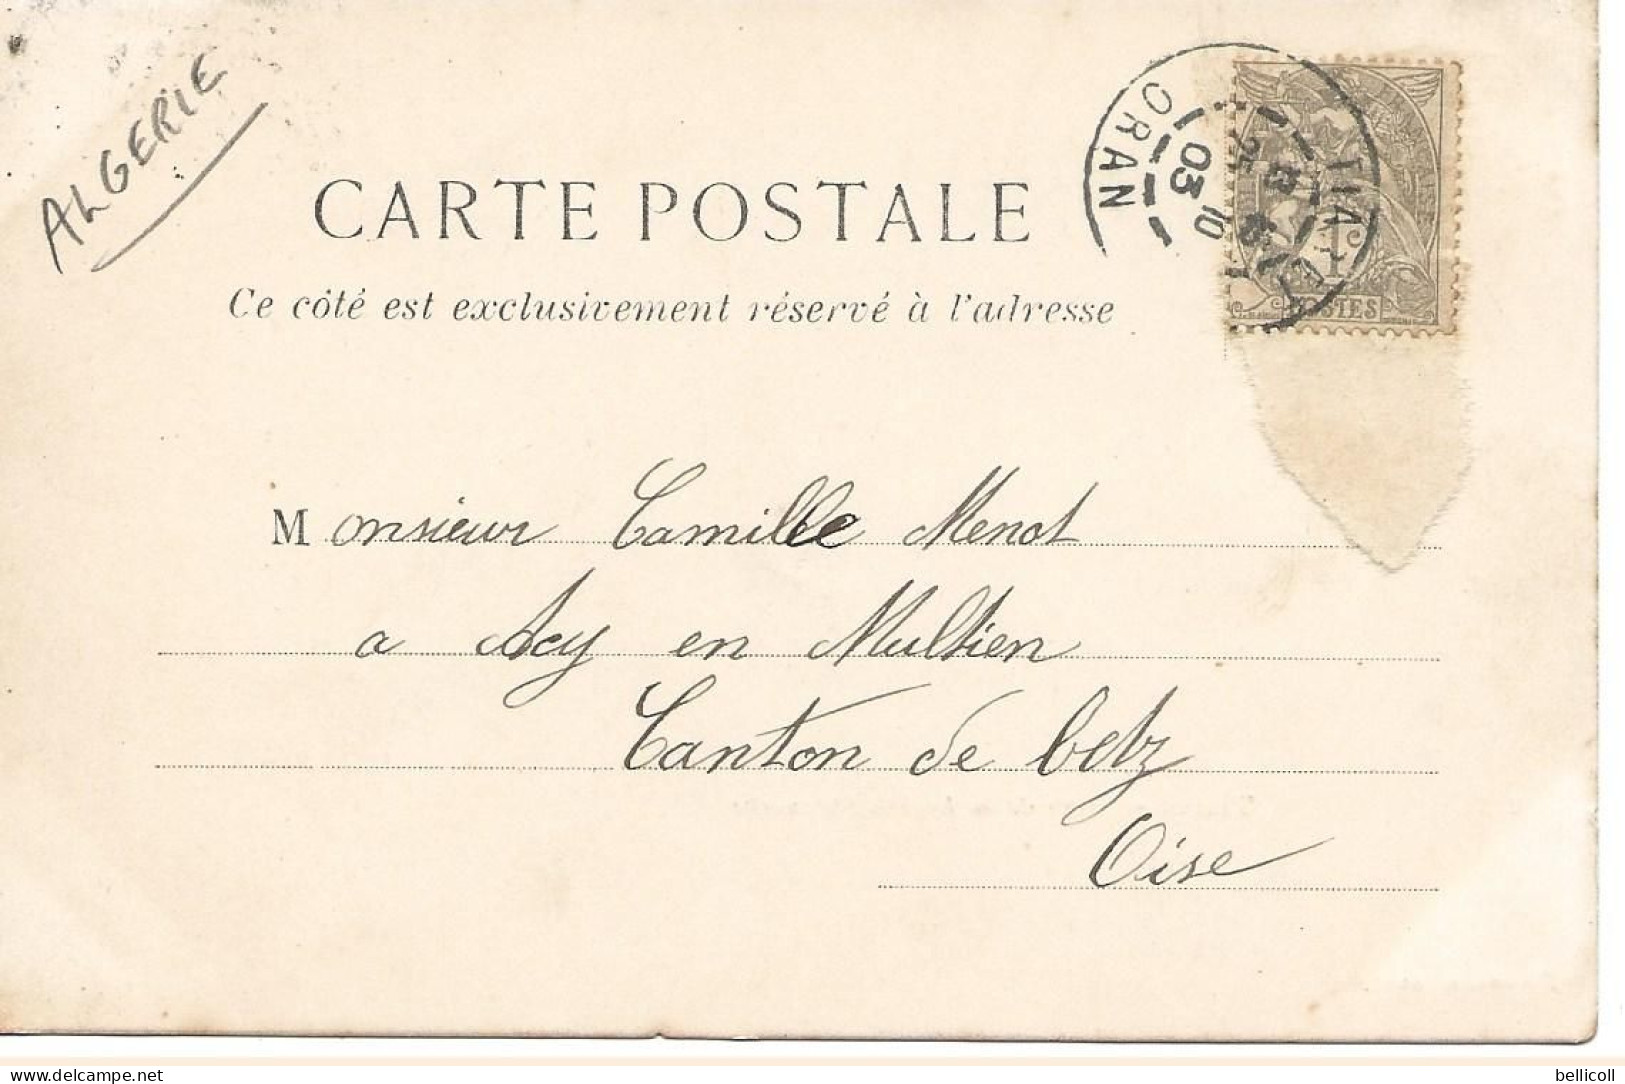 ALGERIE
ORAN
03
10
1c
CARTE POSTALE
Ce côté est exclusivement réservé à l'adresse
Monsieur Camille Menot
a Acy en Multien
Canton de betz
Oise
delcampe.net
bellicoll